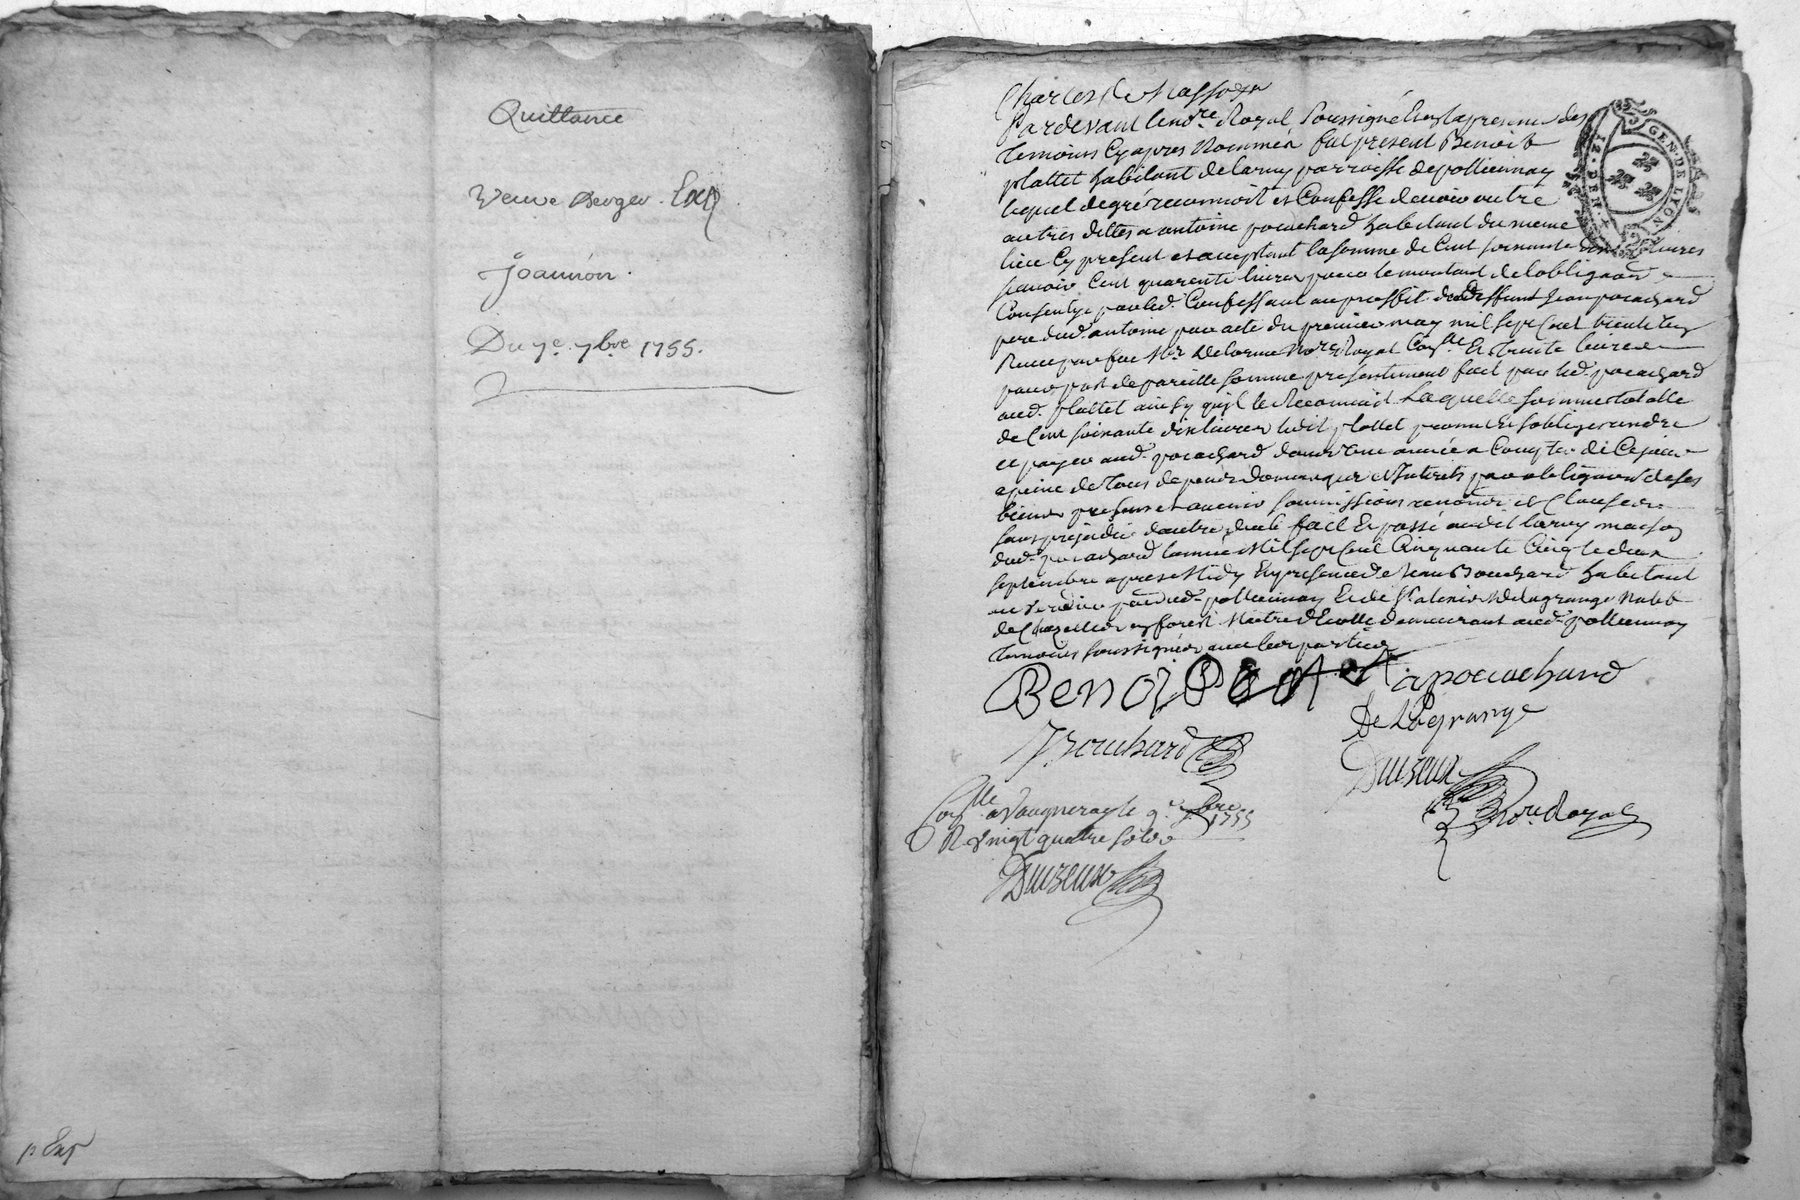 Quittance
Veuve Berger. Exp
Joannon.
Du 7e. 7bre 1755.
p Exp
GEN. DE LYON
Pardevant le no.re Royal soussigné et en la presence des
temoins cy apres nommés fut present Benoit
plattet habitant de larny parroisse de pollionnay
lequel de gré reconnoit et confesse devoir outre
autres dettes a antoine pocachard habitant du meme
lieu cy present et acceptant la somme de cent soixante dix livres
scavoir cent quarente livres pour le montant de lobligaon
consentye par led. confessant au proffit de deffunt jean pocachard
pere dud. antoine par acte du premier may mil sept cent trente
Receu par feu Mr Delorme No.re Royal et trente livres
pour prest de pareille somme presentement fait par led. pocachard
aud. plattet ainsy quil le reconnoit Laquelle somme totalle
de cent soixante dix livres ledit plattet promet et soblige rendre
et payer aud. pocachard dans une année a compter de ce jour
a peine de tous depens dommages et interets par obligaon de ses
biens presens et avenir soumissions renonon et clauses
sans prejudice dautre deub fait et passé audit larny maison
dud. pocachard lannee Mil sept cent cinquante cinq le deux
septembre apres Midy En presence de jean Bouchard habitant
pollionnay Et de Sr delagrange
de Chazelles en forest Maitre dEcolle demeurant aud. pollionnay
temoins soussignés avec les parties
Benoit a pocachard
De Lagrange
J. Bouchard
Duizeux
no.re Royal
Con.lle a Vaugneray le 9.e 7bre 1755
R. vingt quatre sols
Duizeux